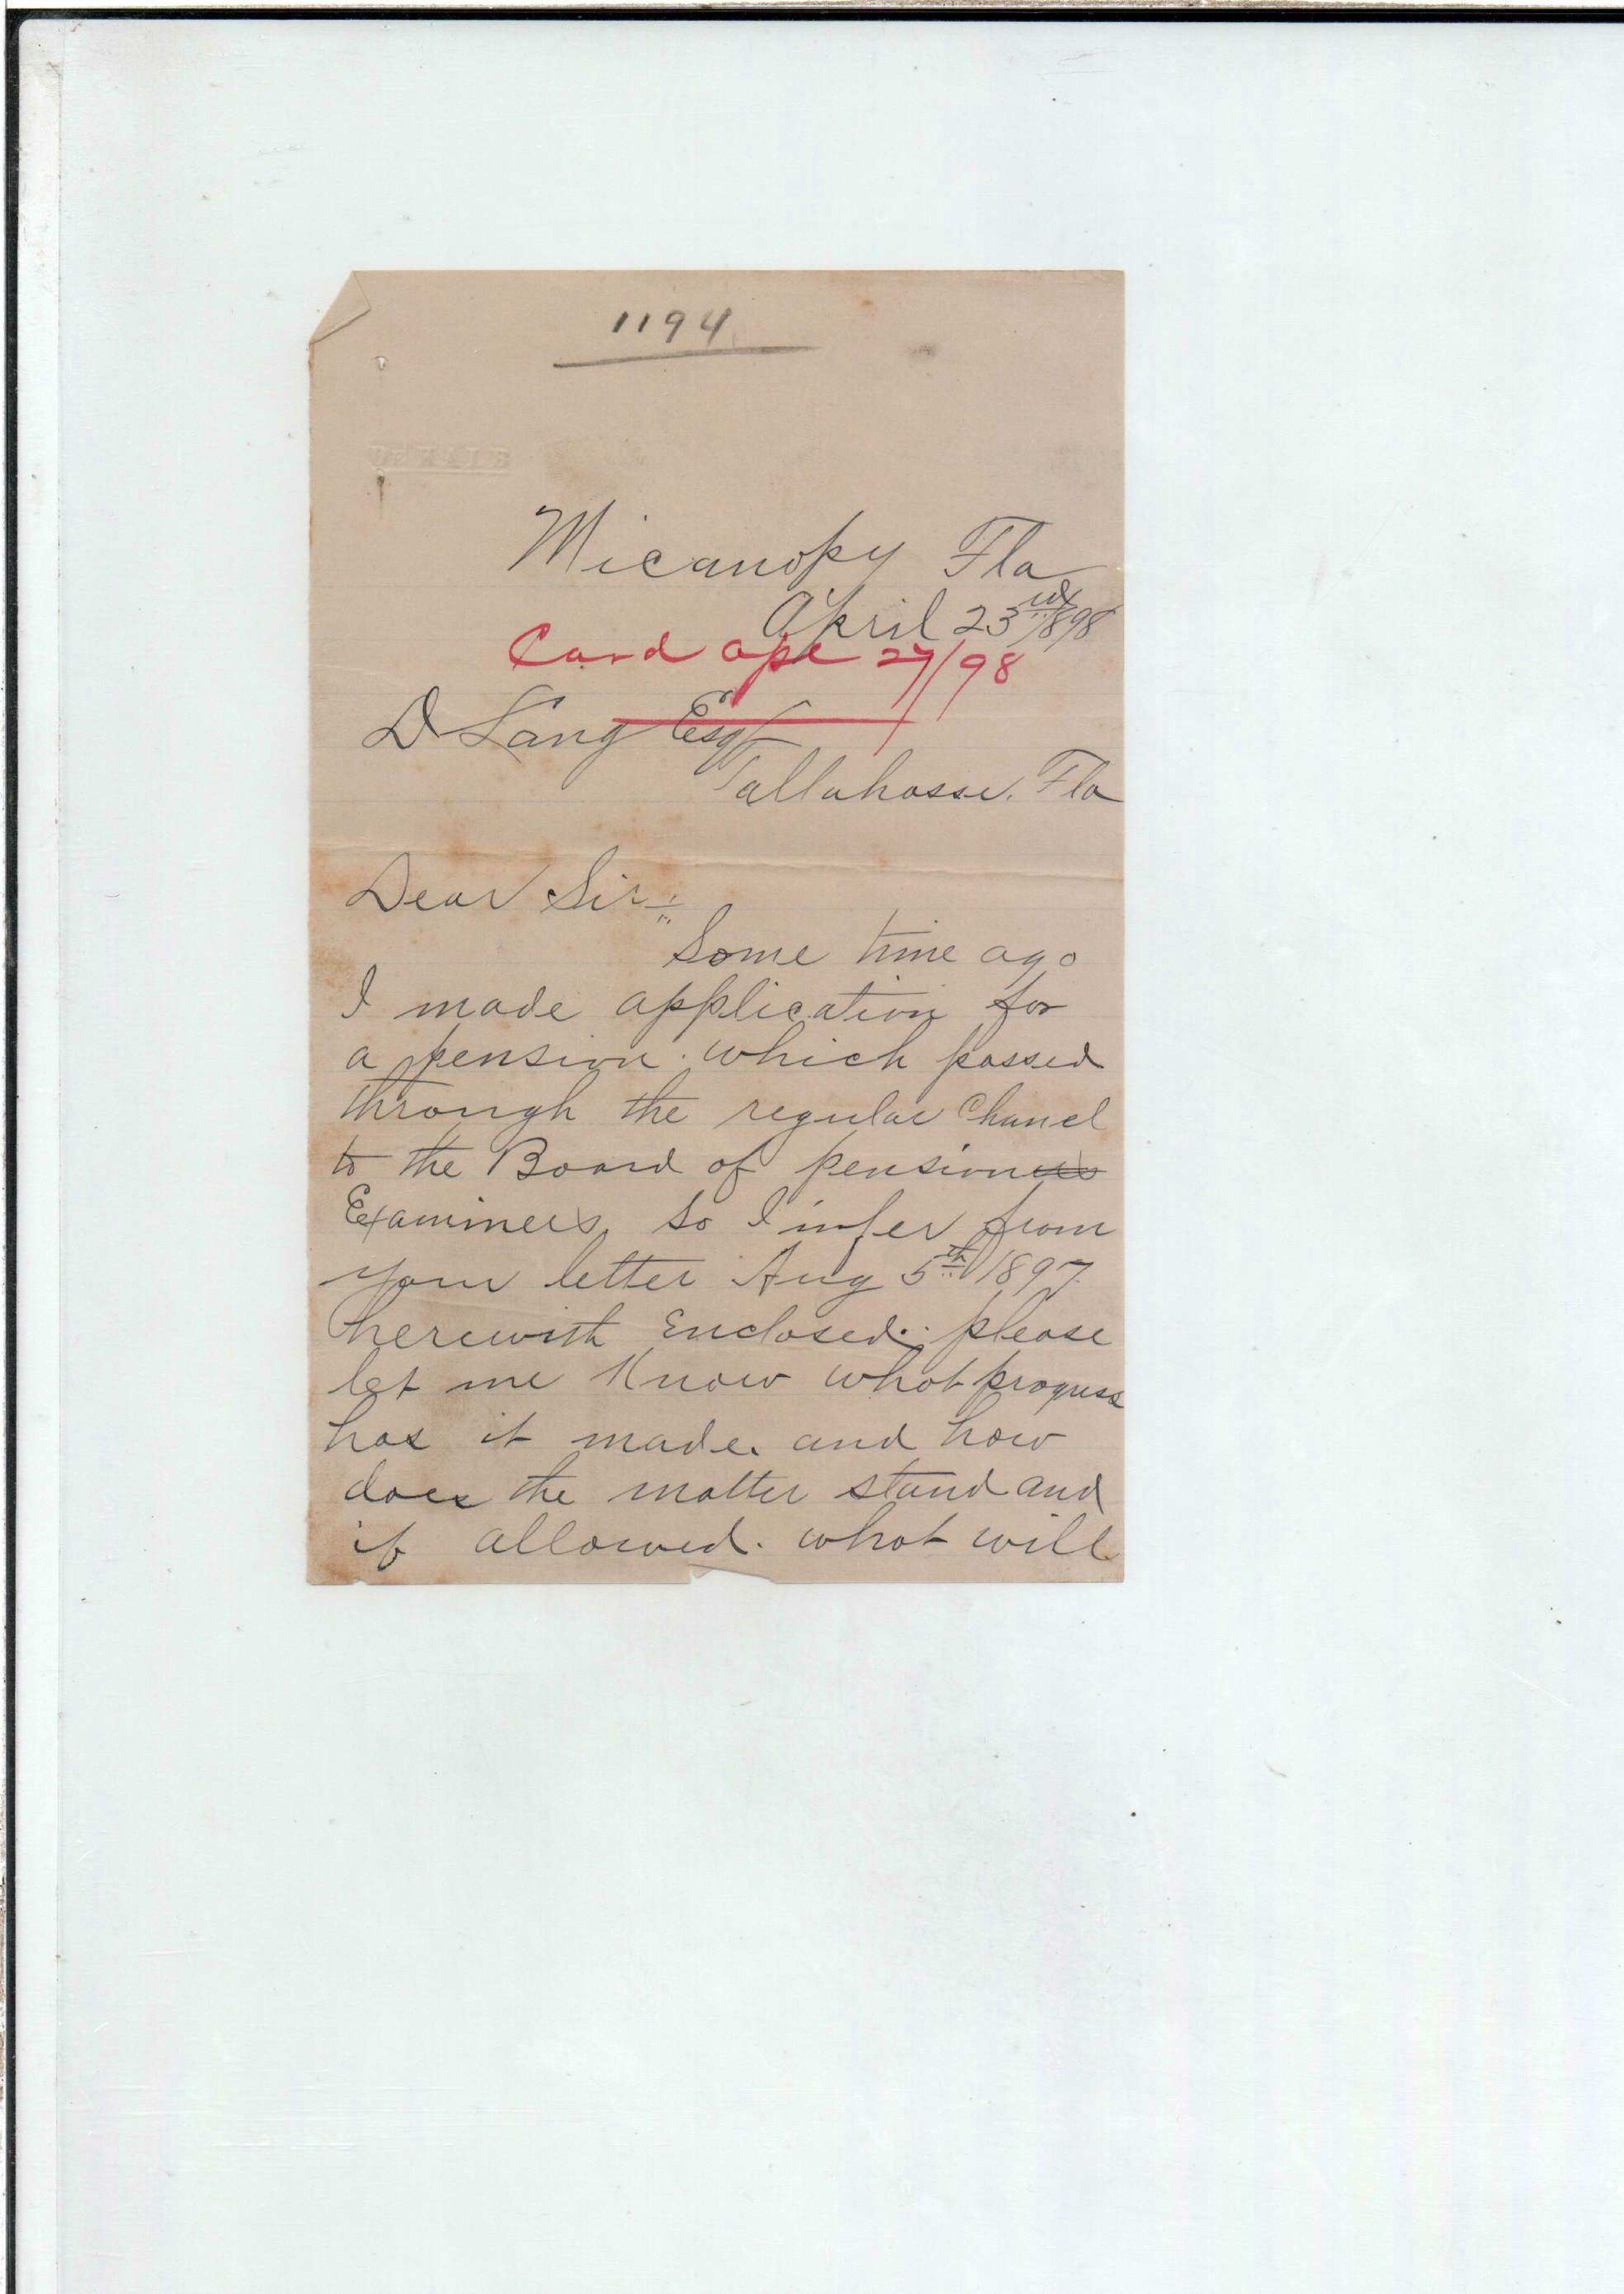 1194
Micanopy Fla
April 23rd/1898
Card Apl 27/98
D Lang Esqr
Tallahasse. Fla
Dear Sir:
Some time ago
I made application for
a pension. which passed
through the regular Chanel
to the Board of pension
Examiners, So I infer from
your letter Aug 5th 1897
herewith Enclosed. please
let me Know what progress
has it made. and how
does the matter stand and
if allowed. what will